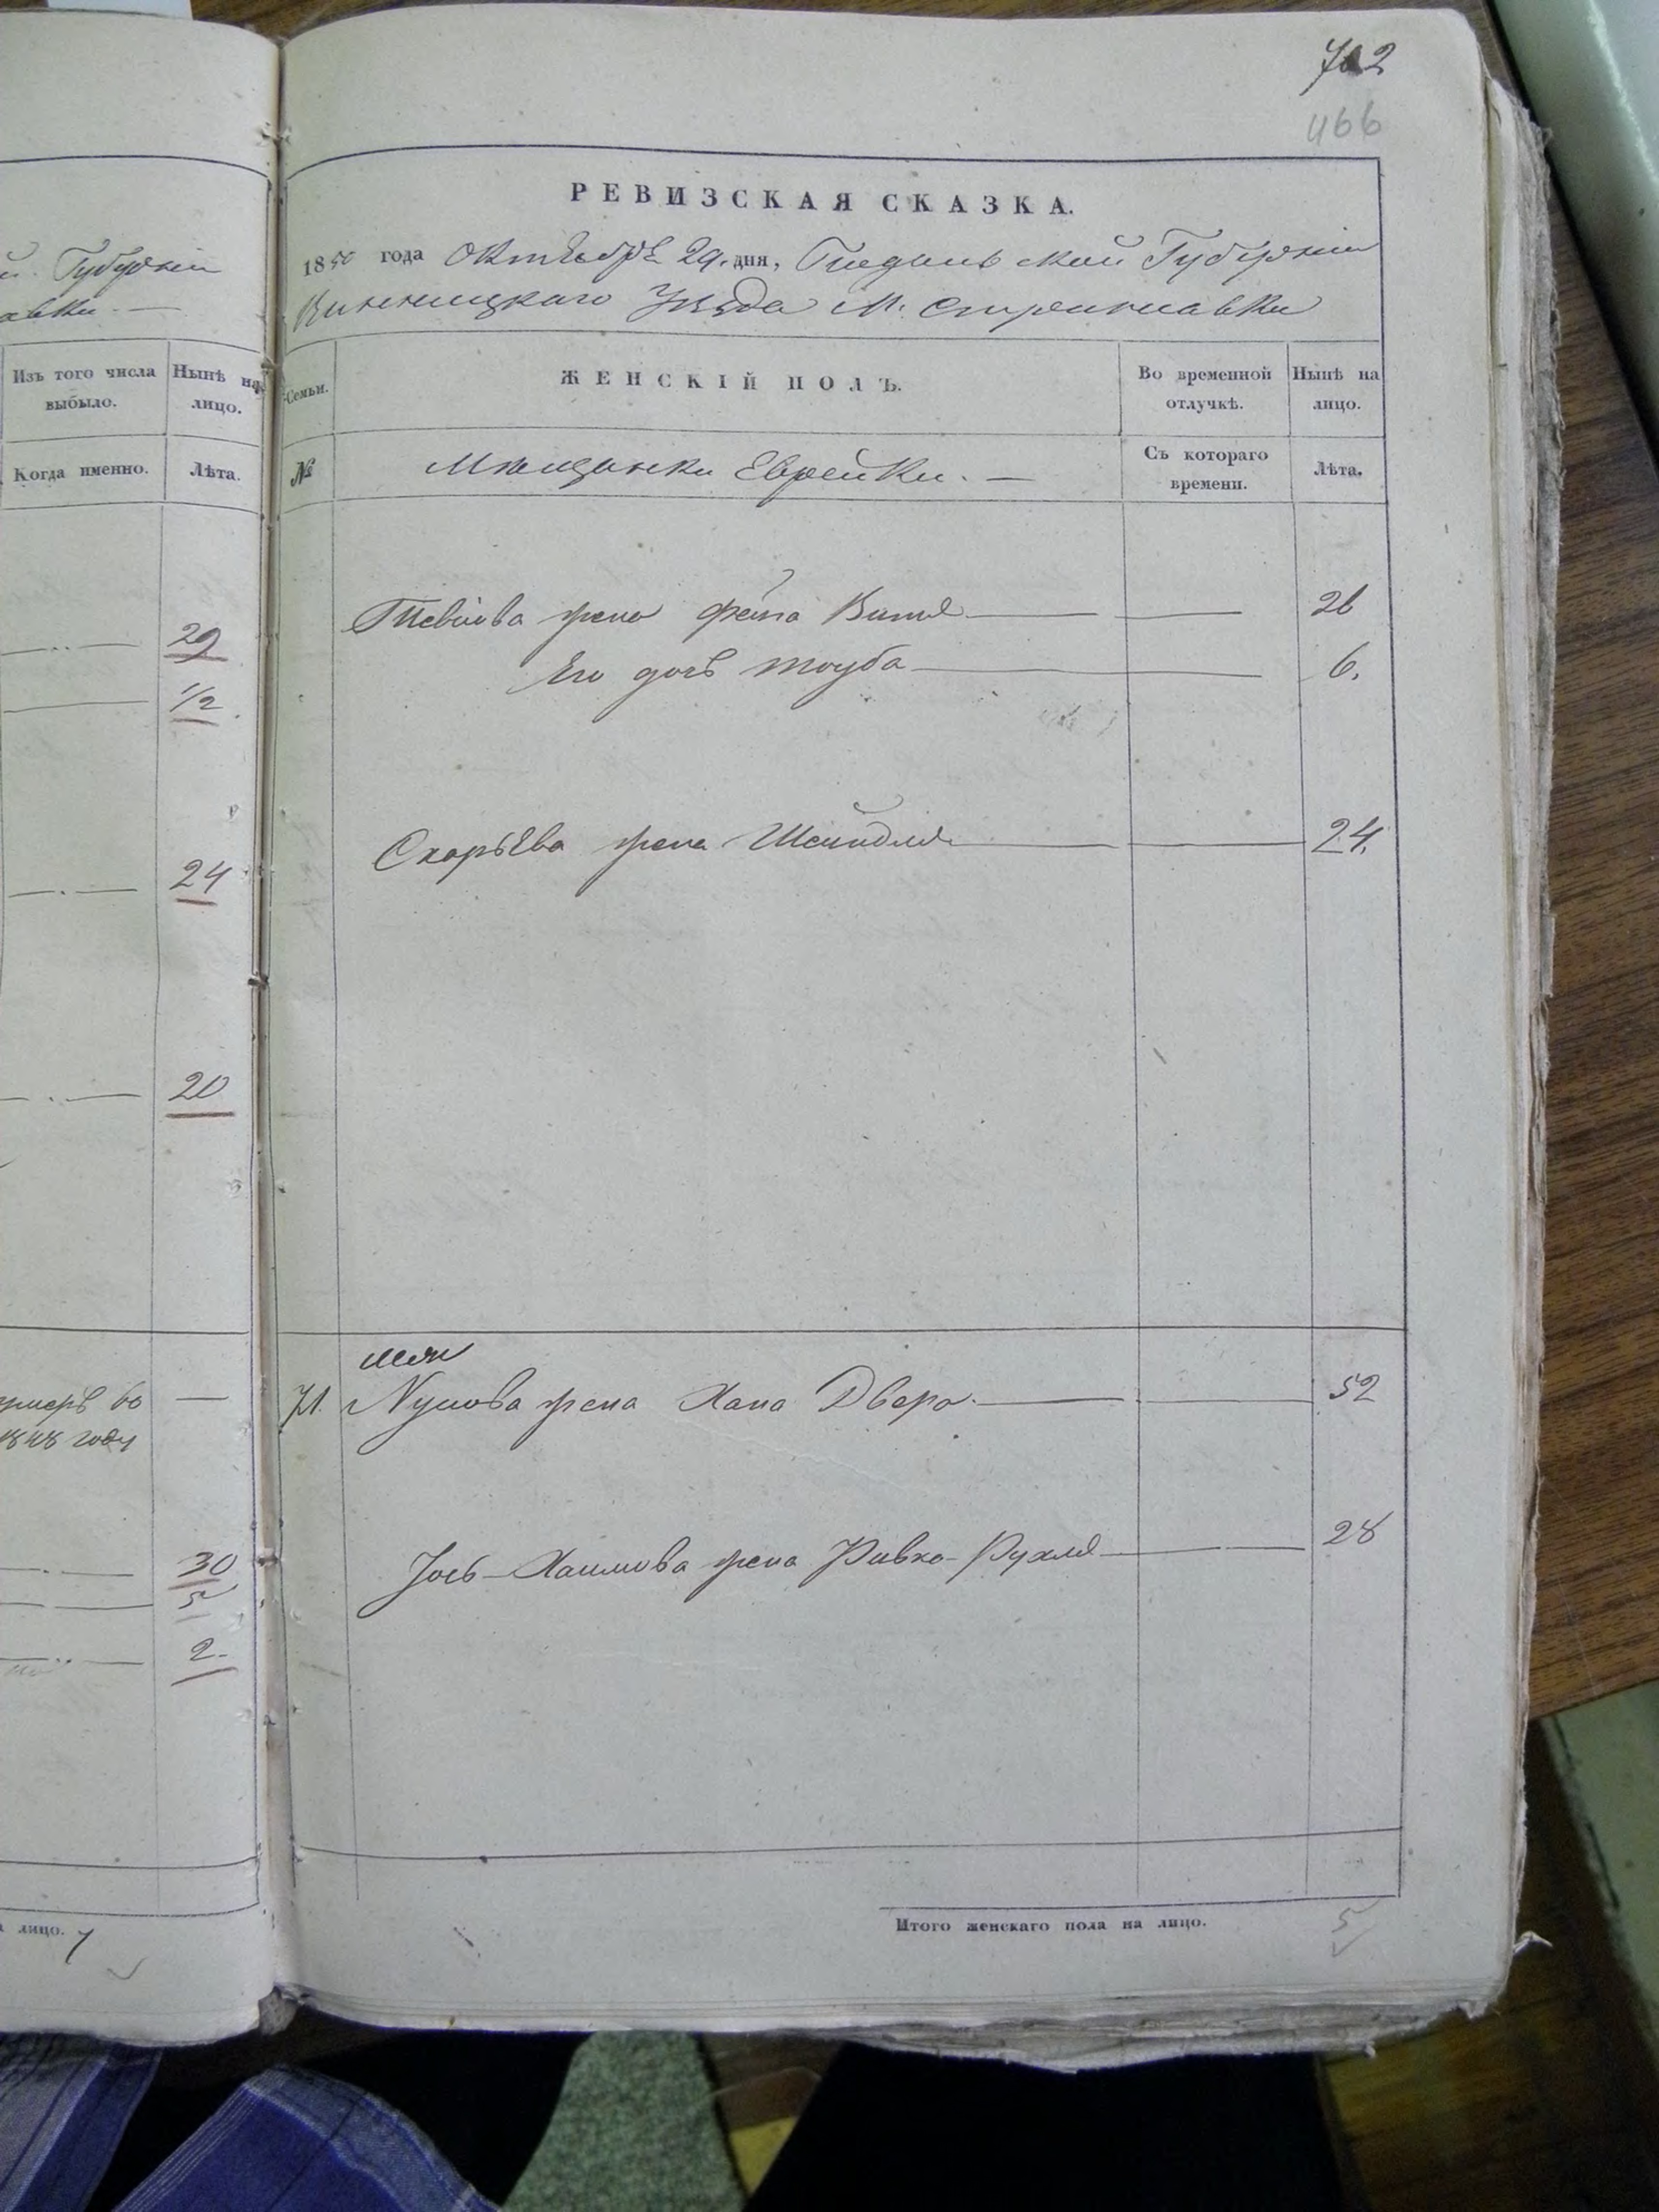 702
466
й Губерніи
авки
Изъ того числа выбыло.
Нынѣ на лицо.
Когда именно.
Лѣта.
29
1/2
24
20
умеръ въ
1848 году
30
5
2
лицо. 7
РЕВИЗСКАЯ СКАЗКА.
1850 года Октября 29 дня, Подольской Губерніи
Винницкаго Уѣзда М. Стрижавки
Семьи.
ЖЕНСКІЙ ПОЛЪ.
Во временной отлучкѣ.
Нынѣ на лицо.
№
Мѣщанки Еврейки.
Съ котораго времени.
Лѣта.
жена Фейга 26
Его дочь Тоуба 6.
жена Шейндля 24.
71. жена Хана Двера 52
Іось-Хаимова жена Ривка-Рухля 28
Итого женскаго пола на лицо. 5